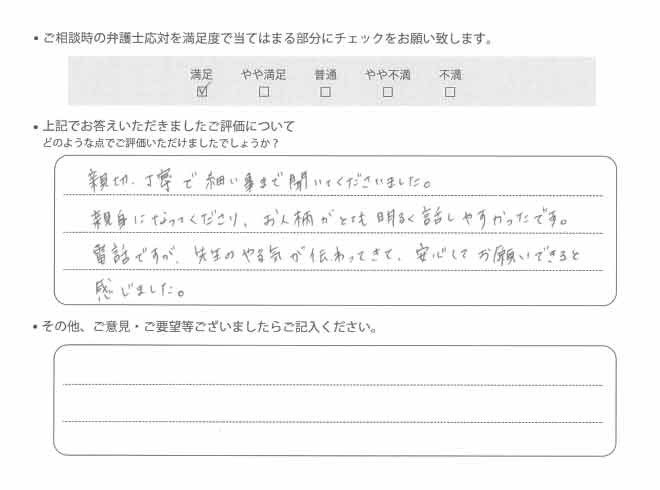 ・ご相談時の弁護士応対を満足度で当てはまる部分にチェックをお願い致します。
満足 やや満足 普通 やや不満 不満
☑ □ □ □ □
・上記でお答えいただきましたご評価について
どのような点でご評価いただけましたでしょうか？
親切、丁寧で細い事まで聞いてくださいました。
親身になってくださり、お人柄がとても明るく話しやすかったです。
電話ですが、先生のやる気が伝わってきて、安心してお願いできると
感じました。
・その他、ご意見・ご要望等ございましたらご記入ください。